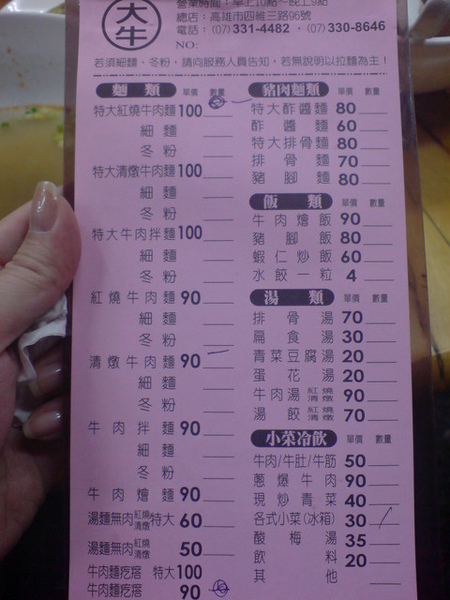 大牛
營業時間：早上10點～晚上9點
總店：高雄市四維三路96號
電話：(07) 331-4482 ・(07) 330-8646
NO:
若須細麵、冬粉，請向服務人員告知，若無說明以拉麵為主！
麵類 單價 數量
特大紅燒牛肉麵 100
細麵
冬粉
特大清燉牛肉麵 100
細麵
冬粉
特大牛肉拌麵 100
細麵
冬粉
紅燒牛肉麵 90
細麵
冬粉
清燉牛肉麵 90
細麵
冬粉
牛肉拌麵 90
細麵
冬粉
牛肉燴麵 90
湯麵無肉紅燒清燉特大 60
湯麵無肉紅燒清燉 50
牛肉麵疙瘩 特大 100
牛肉麵疙瘩 90
豬肉麵類 單價 數量
特大酢醬麵 80
酢醬麵 60
特大排骨麵 80
排骨麵 70
豬腳麵 80
飯類 單價 數量
牛肉燴飯 90
豬腳飯 80
蝦仁炒飯 60
水餃一粒 4
湯類 單價 數量
排骨湯 70
扁食湯 30
青菜豆腐湯 20
蛋花湯 20
牛肉湯 紅燒清燉 90
湯餃 紅燒清燉 70
小菜冷飲 單價 數量
牛肉/牛肚/牛筋 50
蔥爆牛肉 90
現炒青菜 40
各式小菜(冰箱) 30
酸梅湯 35
飲料 20
其他